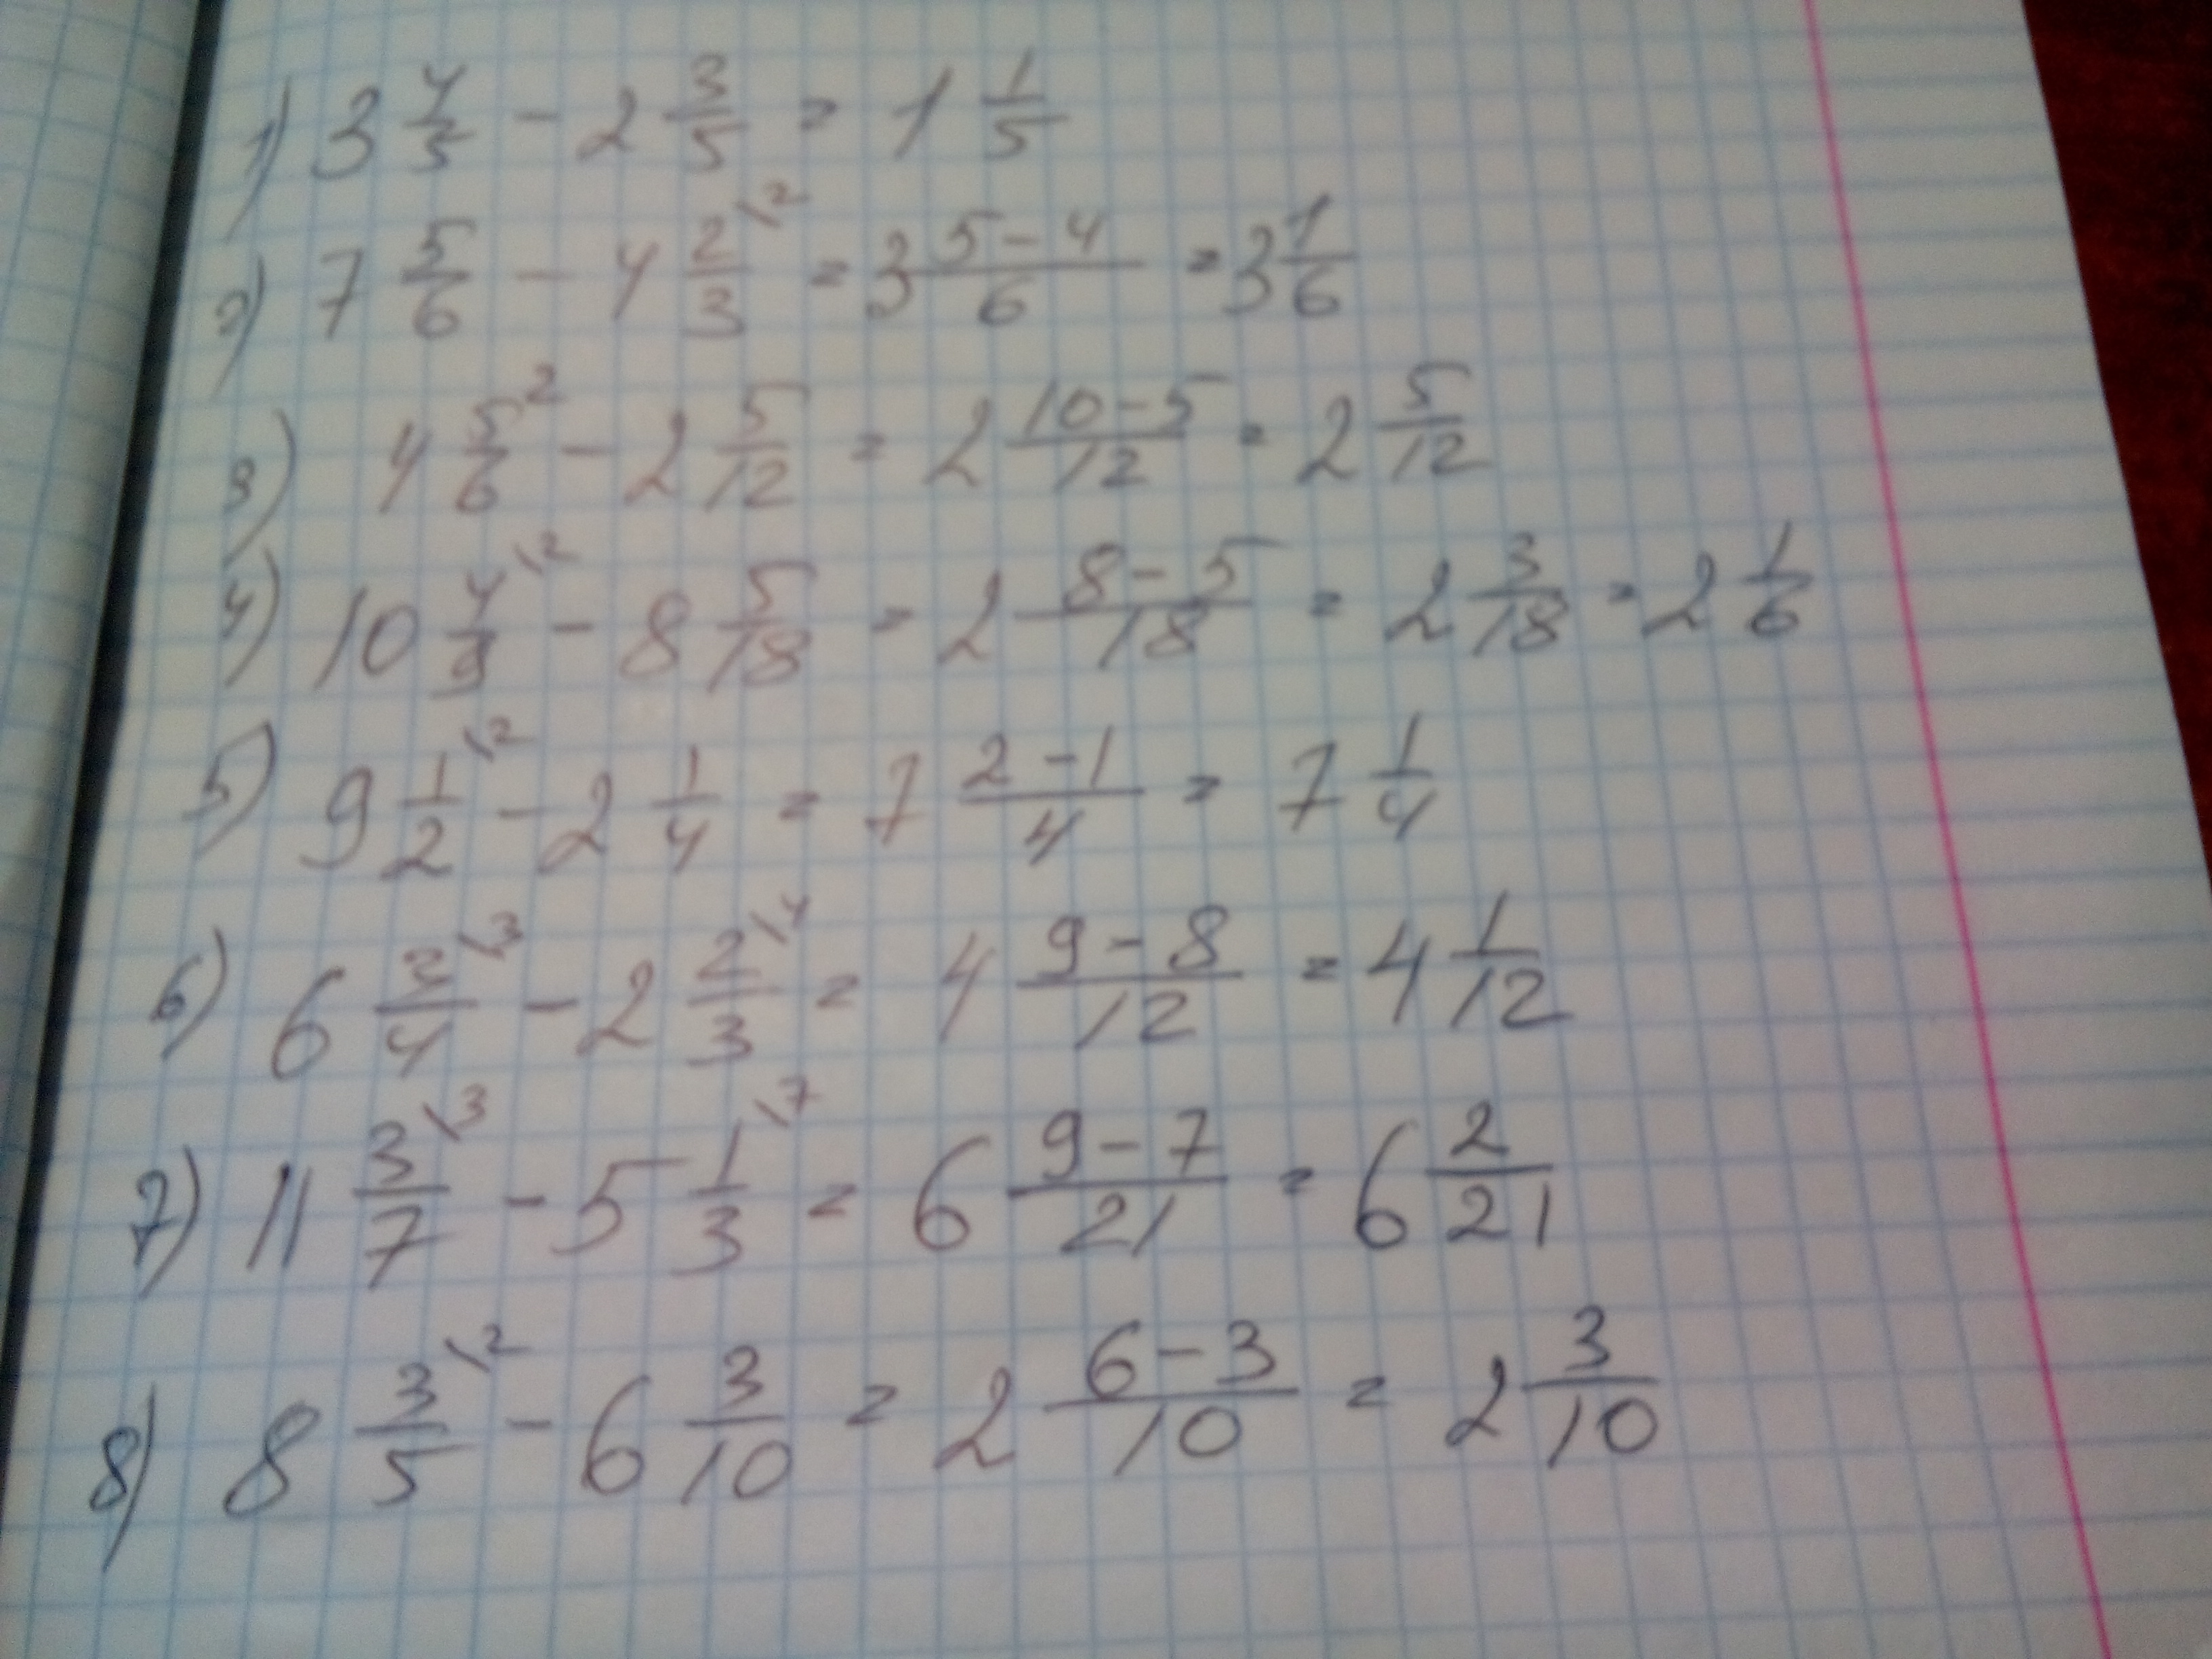 1) 3 4/5 - 2 3/5 = 1 1/5
2) 7 5/6 - 4 2/3 \2 = 3 5-4/6 = 3 1/6
3) 4 5/6 2 - 2 5/12 = 2 10-5/12 = 2 5/12
4) 10 4/9 \2 - 8 5/18 = 2 8-5/18 = 2 3/18 = 2 1/6
5) 9 1/2 \2 - 2 1/4 = 7 2-1/4 = 7 1/4
6) 6 3/4 \3 - 2 2/3 \4 = 4 9-8/12 = 4 1/12
7) 11 3/7 \3 - 5 1/3 \7 = 6 9-7/21 = 6 2/21
8) 8 3/5 \2 - 6 3/10 = 2 6-3/10 = 2 3/10